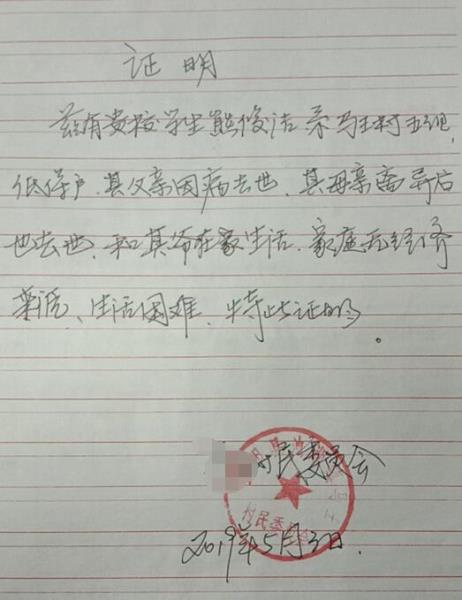 证明
兹有贵校学生熊俊洁系马王村五组
低保户,其父亲因病去世,其母亲离异后
也去世,和其爷在家生活,家庭无经济
来源、生活困难,特此证明。
村民委员会
村民委员会
2019年5月3日.